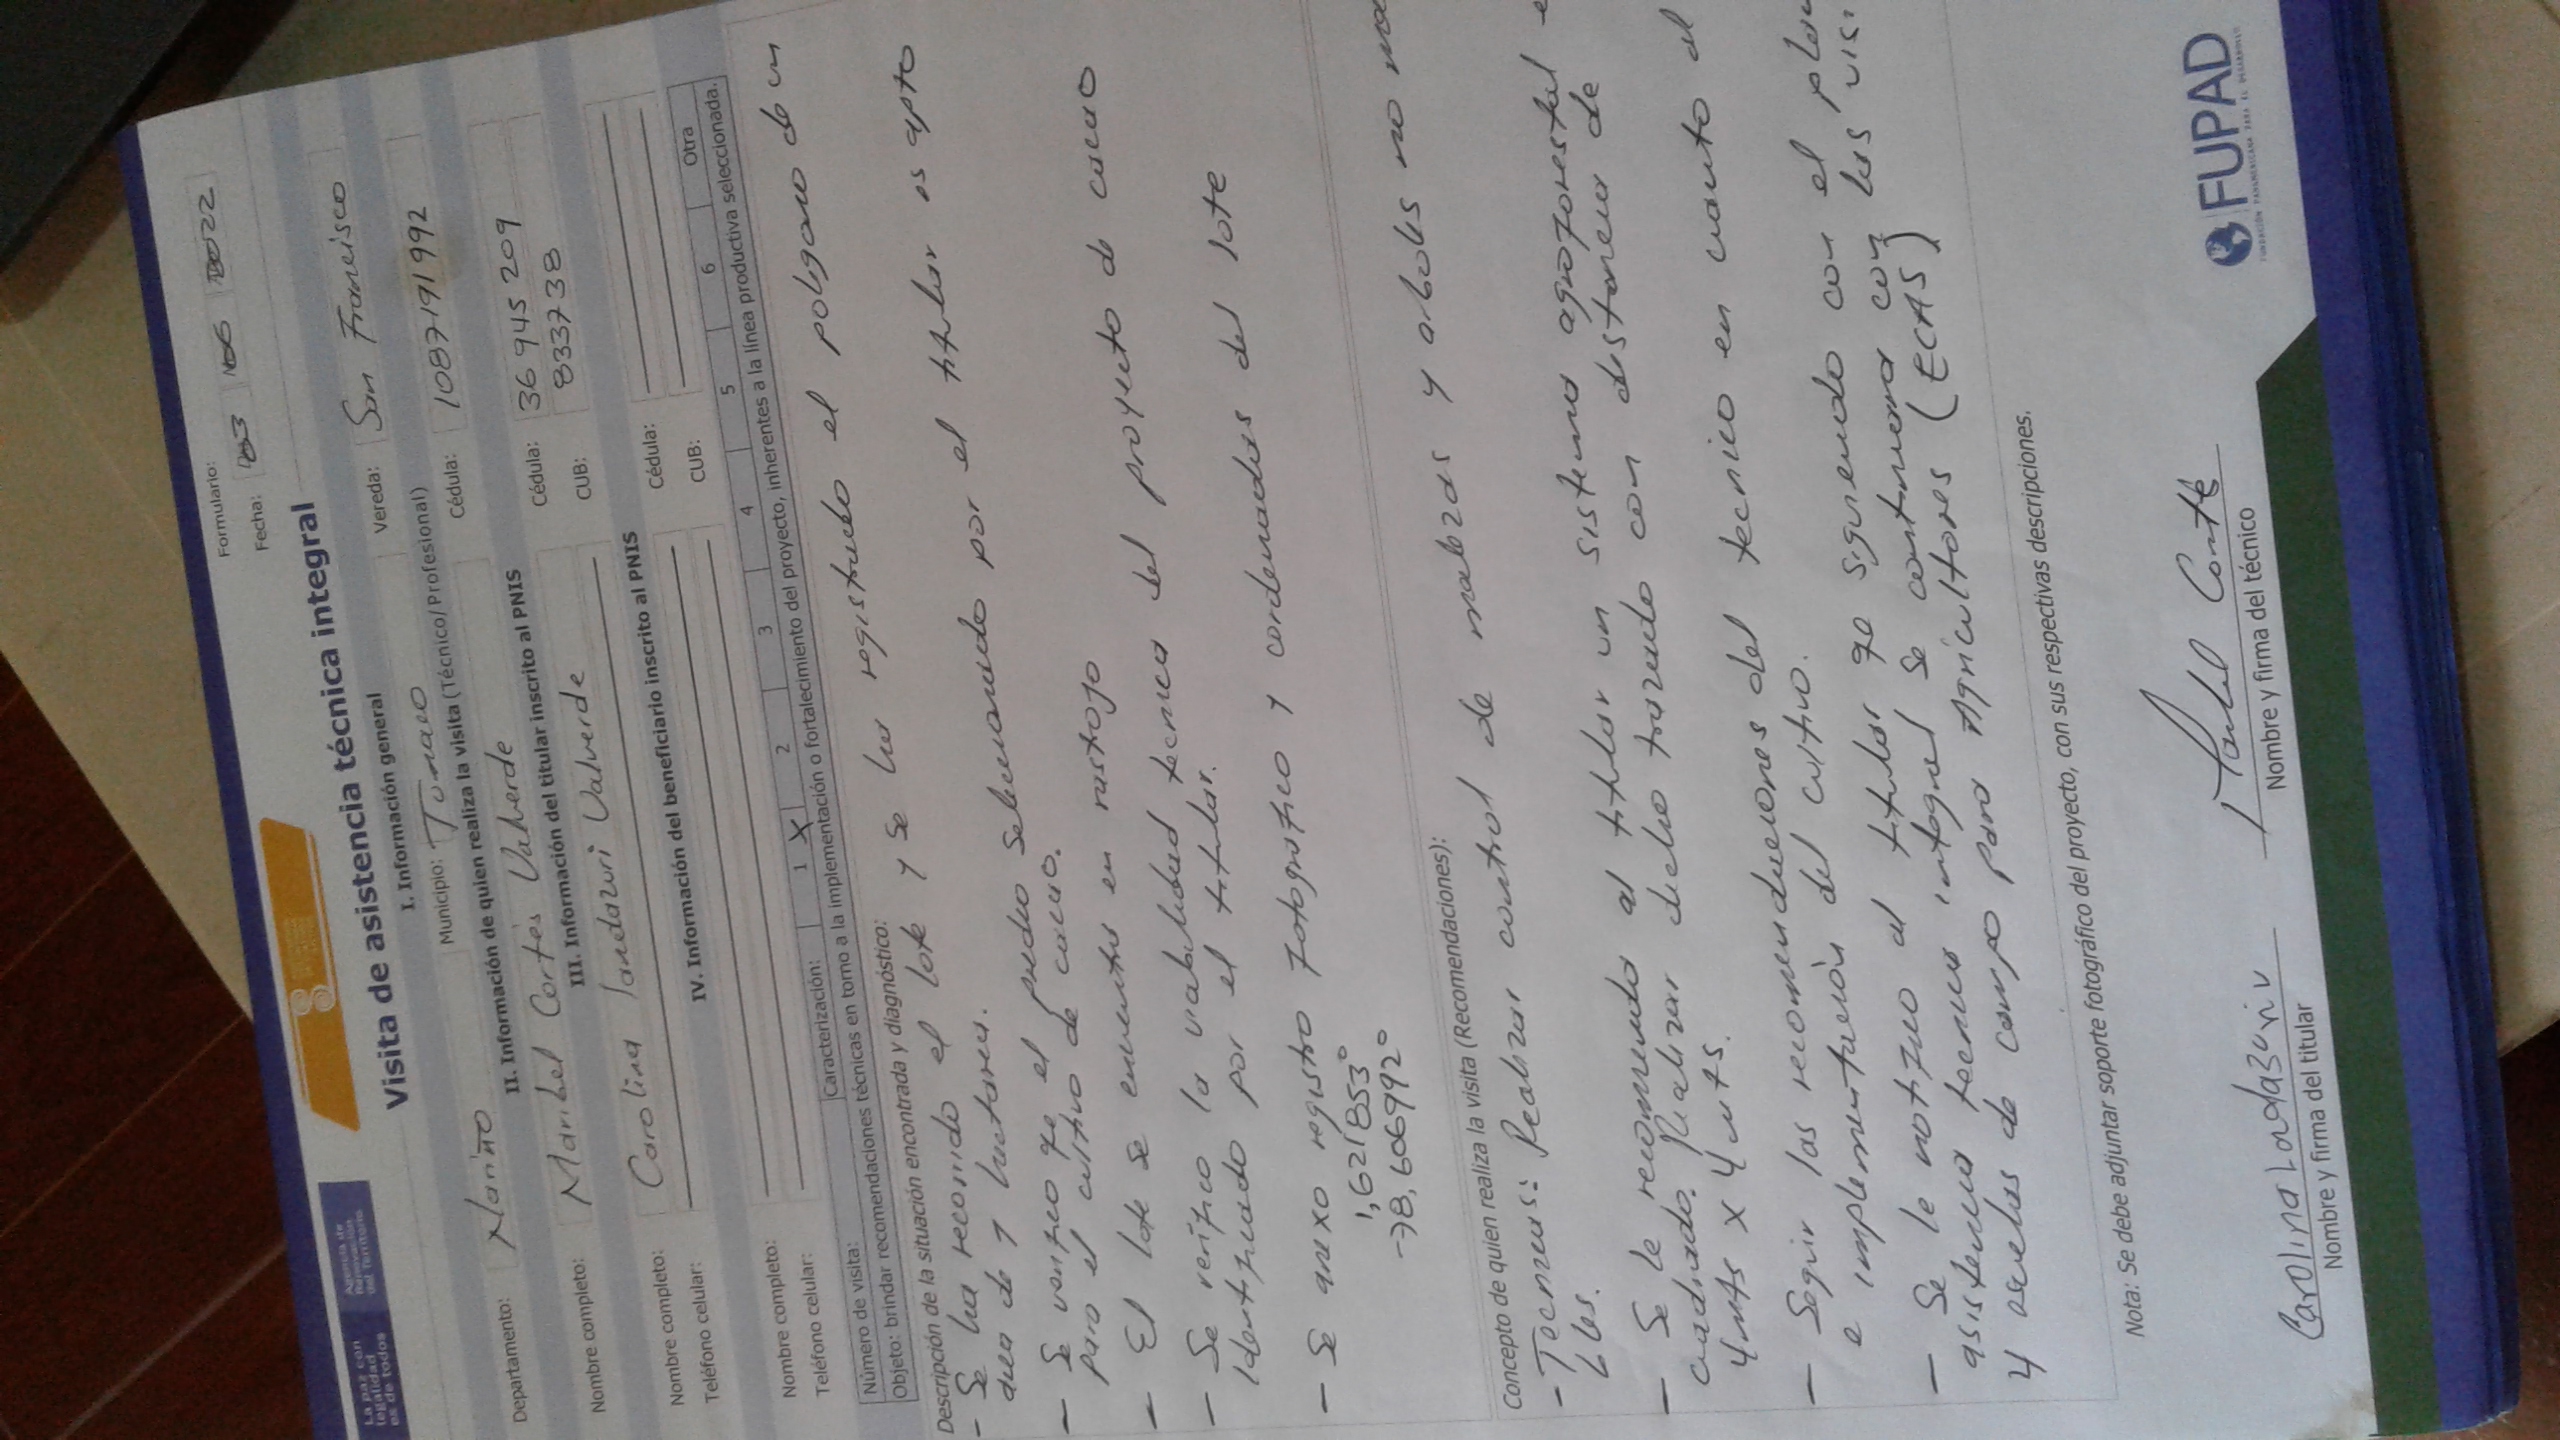 La paz con
legalidad
es de todos
Agencia de
Renovación
del Territorio
Formulario:
Fecha: 2022
Visita de asistencia técnica integral
I. Información general
Departamento: Nariño Municipio: Tumaco Vereda: San Francisco
II. Información de quien realiza la visita (Técnico/Profesional)
Nombre completo: Maribel Cortés Valverde Cédula: 1087191992
III. Información del titular inscrito al PNIS
Nombre completo: Carolina landazuri Valverde Cédula: 36 945 209
Teléfono celular: CUB: 833738
IV. Información del beneficiario inscrito al PNIS
Nombre completo: Cédula:
Teléfono celular: CUB:
Número de visita: Caracterización: 1 X 2 3 4 5 6 Otra
Objeto: brindar recomendaciones técnicas en torno a la implementación o fortalecimiento del proyecto, inherentes a la línea productiva seleccionada.
Descripción de la situación encontrada y diagnóstico:
- Se ha recorrido el lote y se ha registrado el poligono de un
area de 1 hectarea.
- Se verifico qe el predio seleccionado por el titular es apto
para el cultivo de cacao.
- El lote se encuentra en rastrojo
- Se verifico la viabilidad tecnica del proyecto de cacao
identificado por el titular.
- Se anexo registro fotografico y cordenadas del lote
1,621853°
-78,6069920
Concepto de quien realiza la visita (Recomendaciones):
- Tecnicas: Realizar control de malezas y arboles no
bles.
- Se le recomienda al titular un sistema agroforestal e
cuadrado. Realizar dicho trazado con distancia de
4 mts x 4 mts.
- Seguir las recomendaciones del tecnico en cuanto al
e implementación del cultivo.
- Se le notifico al titular qe siguiendo con el plan
asistencia tecnica integral se continuara con las vis.
y escuelas de campo para Agricultores (ECAS)
Nota: Se debe adjuntar soporte fotográfico del proyecto, con sus respectivas descripciones.
Carolina Landazuri v
Nombre y firma del titular
Maribel Cortés
Nombre y firma del técnico
FUPAD
FUNDACIÓN PANAMERICANA PARA EL DESARROLLO